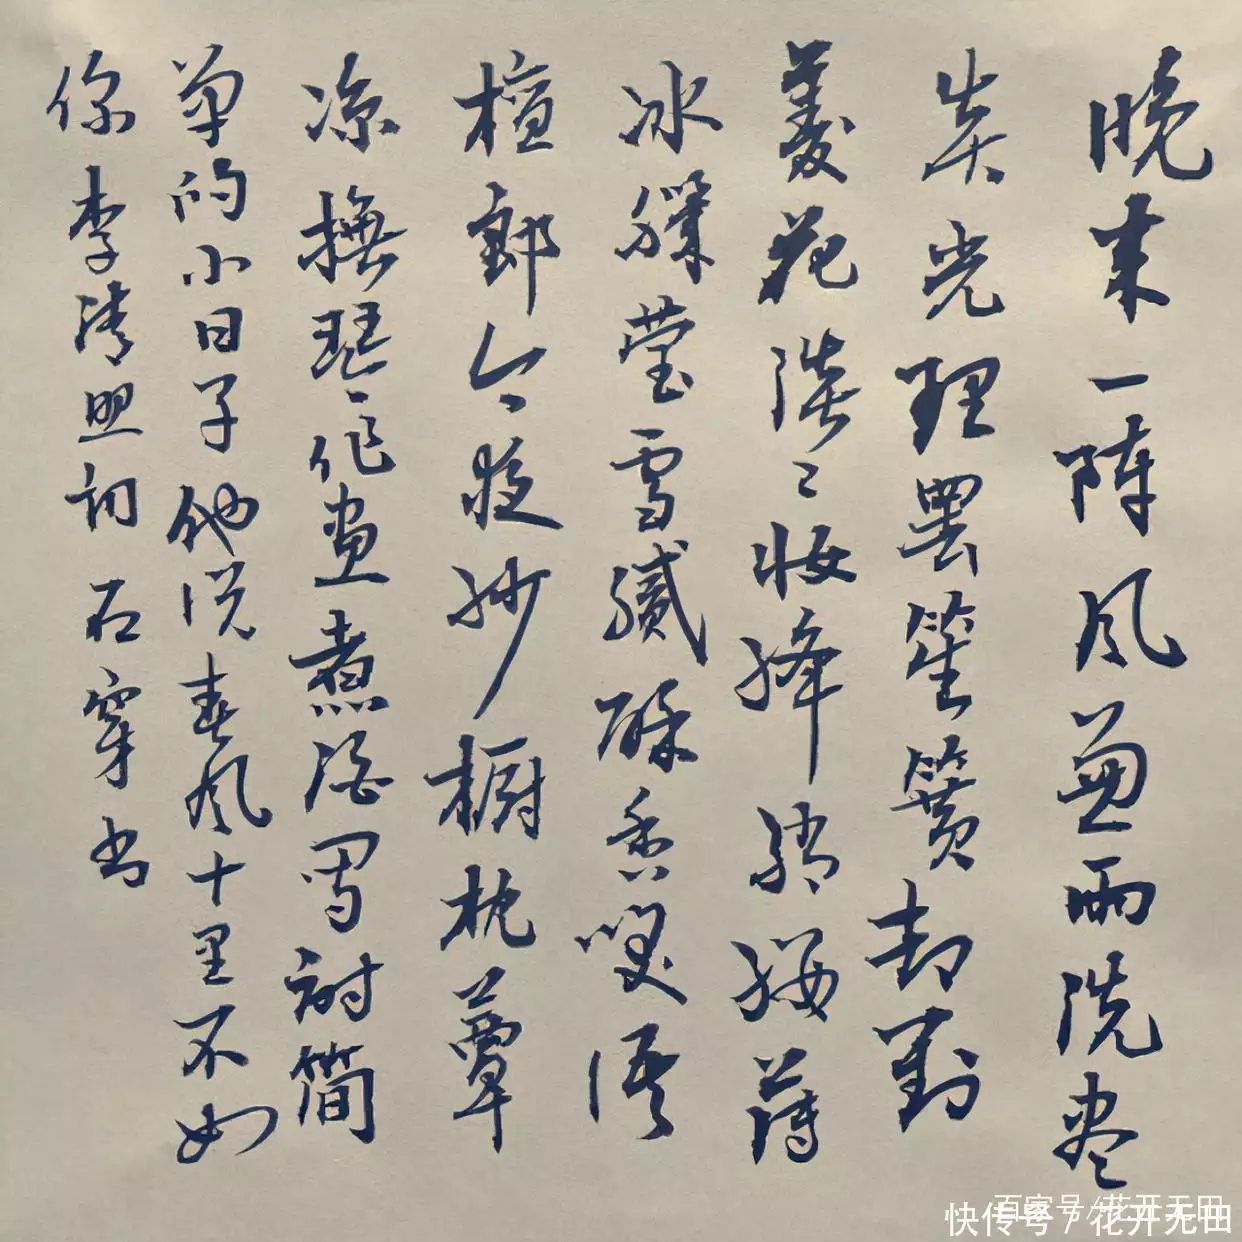 晚来一陣风兼雨洗尽
炎光理罢笙簧却對
菱花淡淡妝绛绡缕薄
冰肌莹雪膩酥香笑语
檀郎今夜纱橱枕簟
凉撫琴作画煮酒写詩简
单的小日子他说春风十里不如
你李清照词石穿书
百家号/花开无田
快传号/花开无田